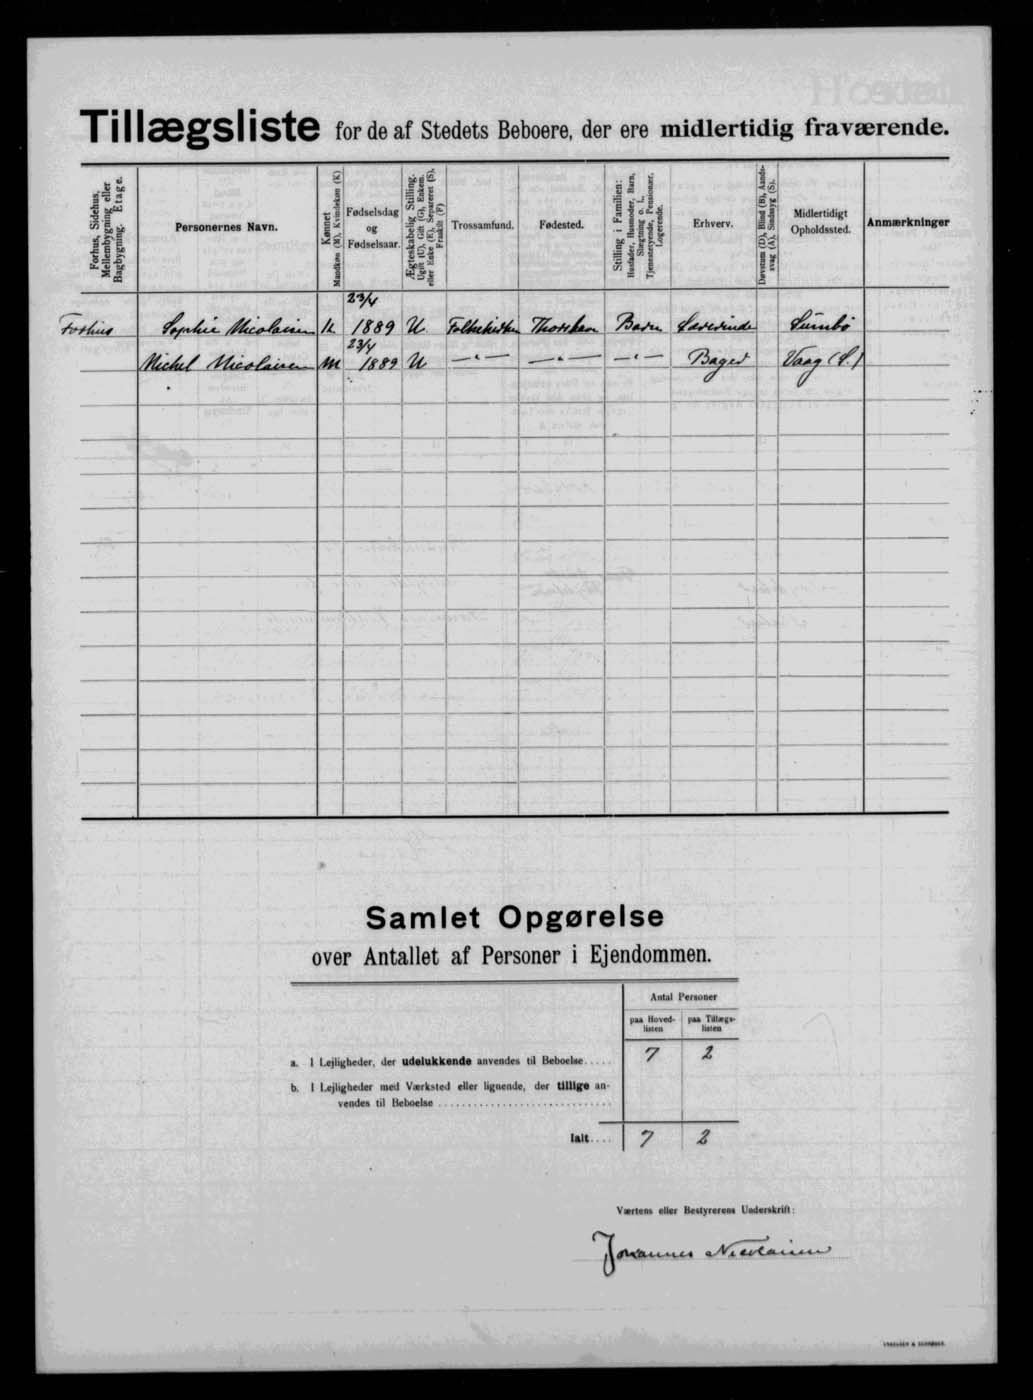 Tillægsliste for de af Stedets Beboere, der ere midlertidig fraværende.
Forhus, Sidehus, Mellembygning eller Bagbygning. Etage.
Personernes Navn.
Kønnet Mandkøn (M), Kvindekøn (K)
Fødselsdag og Fødselsaar.
Ægteskabelig Stilling. Ugift (U), Gift (G), Enkem. eller Enke (E), Separeret (S), Fraskilt (F)
Trossamfund.
Fødested.
Stilling i Familien: Husfader, Husmoder, Barn, Slægtning o. l. Tjenestetyende, Pensionær, Logerende.
Erhverv.
Døvstum (D), Blind (B), Aandssvag (A), Sindssyg (S).
Midlertidigt Opholdssted.
Anmærkninger
23/4
Forhus Sophie Nicolaisen K 1889 U Folkekirken Thorshavn Barn Lærerinde Sumbø
23/4
Michel Nicolaisen M 1889 U —"— —"— —"— Bager Vaag (S.)
Samlet Opgørelse
over Antallet af Personer i Ejendommen.
Antal Personer
paa Hoved-listen paa Tillægs-listen
a. I Lejligheder, der udelukkende anvendes til Beboelse..... 7 2
b. I Lejligheder med Værksted eller lignende, der tillige an-
vendes til Beboelse
Ialt.... 7 2
Værtens eller Bestyrerens Underskrift:
Johannes Nicolaisen